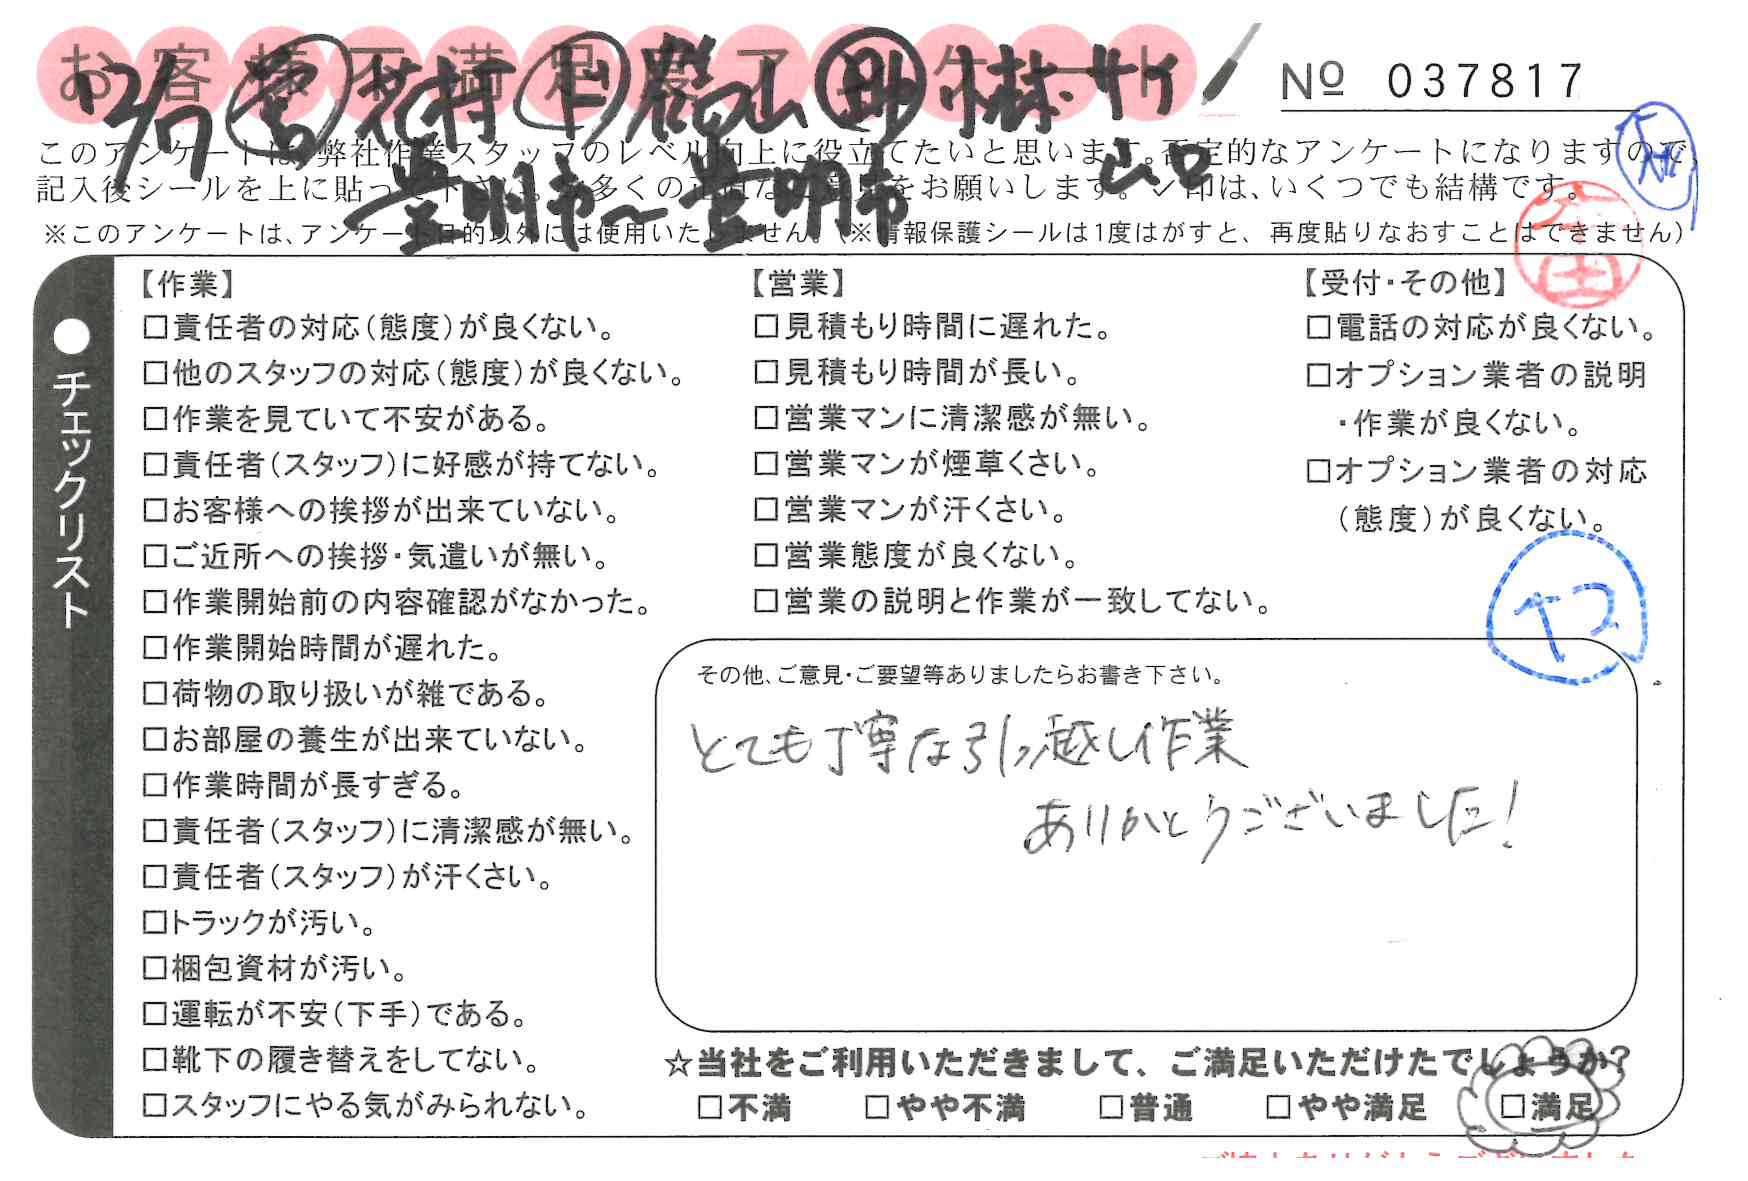 お客様不満足度アンケート
№ 037817
12/7 営 花村 ド 嵩山 助 小林・サイ
山口
豊明市〜豊明市
このアンケートは、弊社作業スタッフのレベル向上に役立てたいと思います。否定的なアンケートになりますので、
記入後シールを上に貼って下さい。数多くの正直なご意見をお願いします。レ印は、いくつでも結構です。
※このアンケートは、アンケート目的以外には使用いたしません。(※情報保護シールは1度はがすと、再度貼りなおすことはできません)
●チェックリスト
【作業】
□責任者の対応(態度)が良くない。
□他のスタッフの対応(態度)が良くない。
□作業を見ていて不安がある。
□責任者(スタッフ)に好感が持てない。
□お客様への挨拶が出来ていない。
□ご近所への挨拶・気遣いが無い。
□作業開始前の内容確認がなかった。
□作業開始時間が遅れた。
□荷物の取り扱いが雑である。
□お部屋の養生が出来ていない。
□作業時間が長すぎる。
□責任者(スタッフ)に清潔感が無い。
□責任者(スタッフ)が汗くさい。
□トラックが汚い。
□梱包資材が汚い。
□運転が不安(下手)である。
□靴下の履き替えをしてない。
□スタッフにやる気がみられない。
【営業】
□見積もり時間に遅れた。
□見積もり時間が長い。
□営業マンに清潔感が無い。
□営業マンが煙草くさい。
□営業マンが汗くさい。
□営業態度が良くない。
□営業の説明と作業が一致してない。
【受付・その他】
□電話の対応が良くない。
□オプション業者の説明
・作業が良くない。
□オプション業者の対応
(態度)が良くない。
その他、ご意見・ご要望等ありましたらお書き下さい。
とても丁寧な引っ越し作業
ありがとうございました!
☆当社をご利用いただきまして、ご満足いただけたでしょうか?
□不満 □やや不満 □普通 □やや満足 □満足